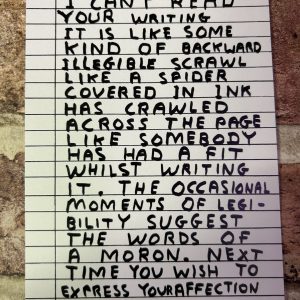 I CAN'T READ
YOUR WRITING
IT IS LIKE SOME
KIND OF BACKWARD
ILLEGIBLE SCRAWL
LIKE A SPIDER
COVERED IN INK
HAS CRAWLED
ACROSS THE PAGE
LIKE SOMEBODY
HAS HAD A FIT
WHILST WRITING
IT. THE OCCASIONAL
MOMENTS OF LEGI-
BILITY SUGGEST
THE WORDS OF
A MORON. NEXT
TIME YOU WISH TO
EXPRESS YOUR AFFECTION